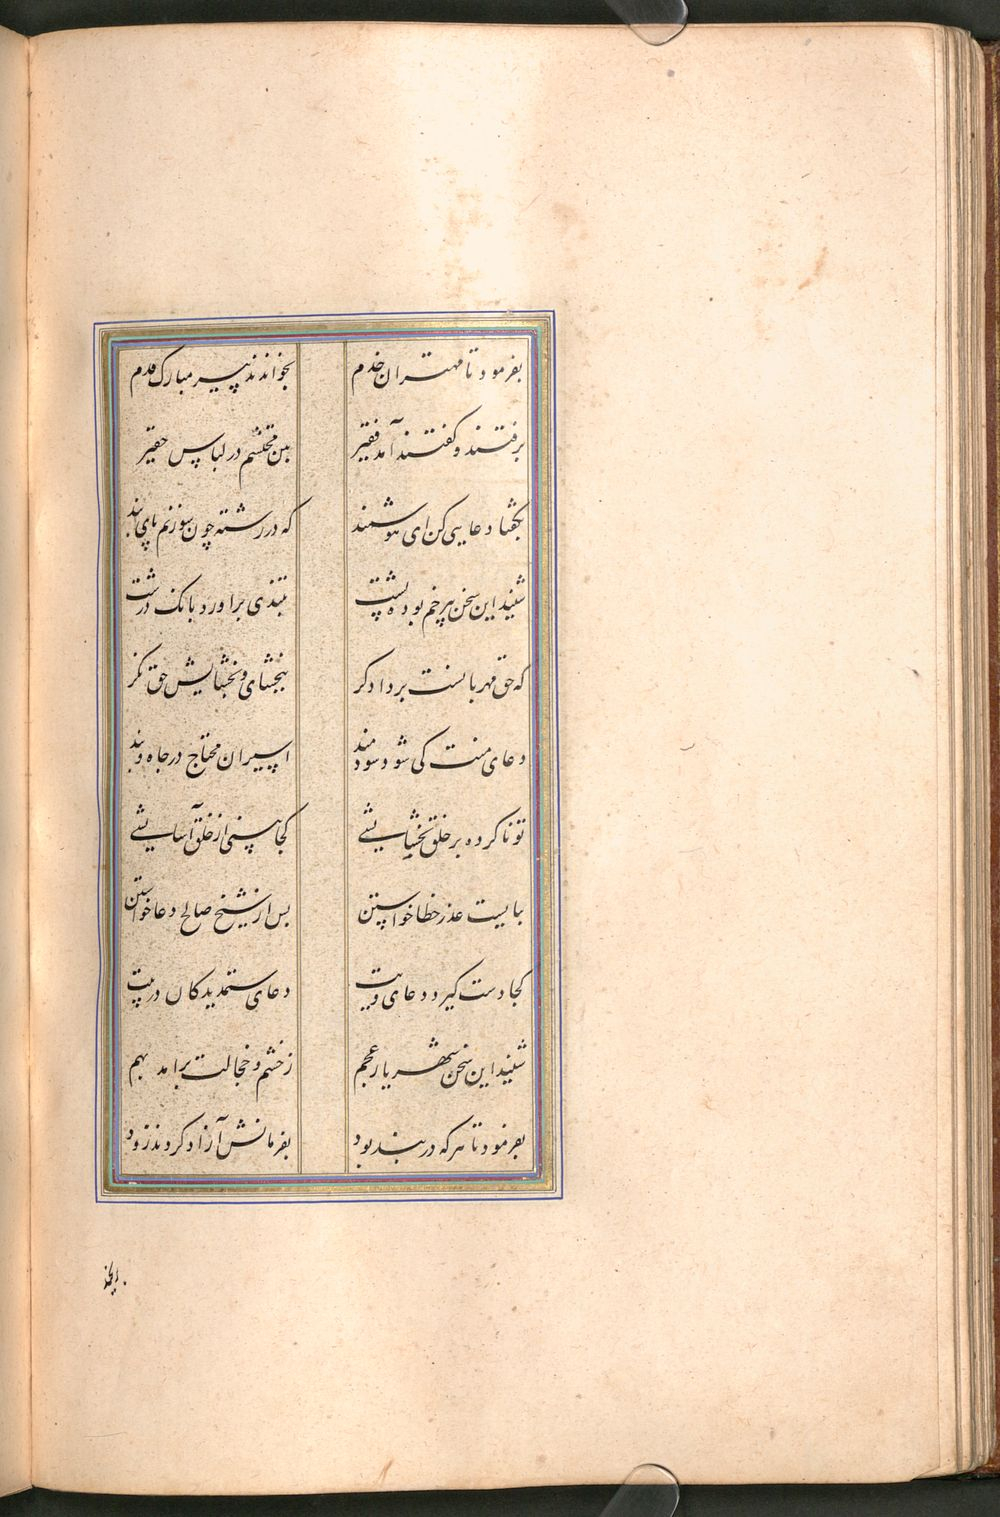 بفرمود تا مهتران خدم بخواندند پیر مبارک قدم
برفتند و گفتند آمد فقیر تن محتشم در لباس حقیر
بگفتا دعایی کن ای هوشمند که در رشته چون سوزنم پای بند
شنید این سخن پیر خم بوده پشت بتندی براورد بانک درشت
که حق مهربانست بر دادکر ببخشای و بخشایش حق نکر
دعای منت کی شود سودمند اسیران محتاج در چاه و بند
تو ناکرده بر خلق بخشایشی کجا بینی از خلق آسایشی
ببایست عذر خطا خواستن پس از شیخ صالح دعا خواستن
کجا دست کیرد دعای ویت دعای ستمدیدکان در پیت
شنید این سخن شهریار عجم ز خشم و خجالت برامد بهم
بفرمود تا هر که در بند بود بفرمانش آزاد کردند زود